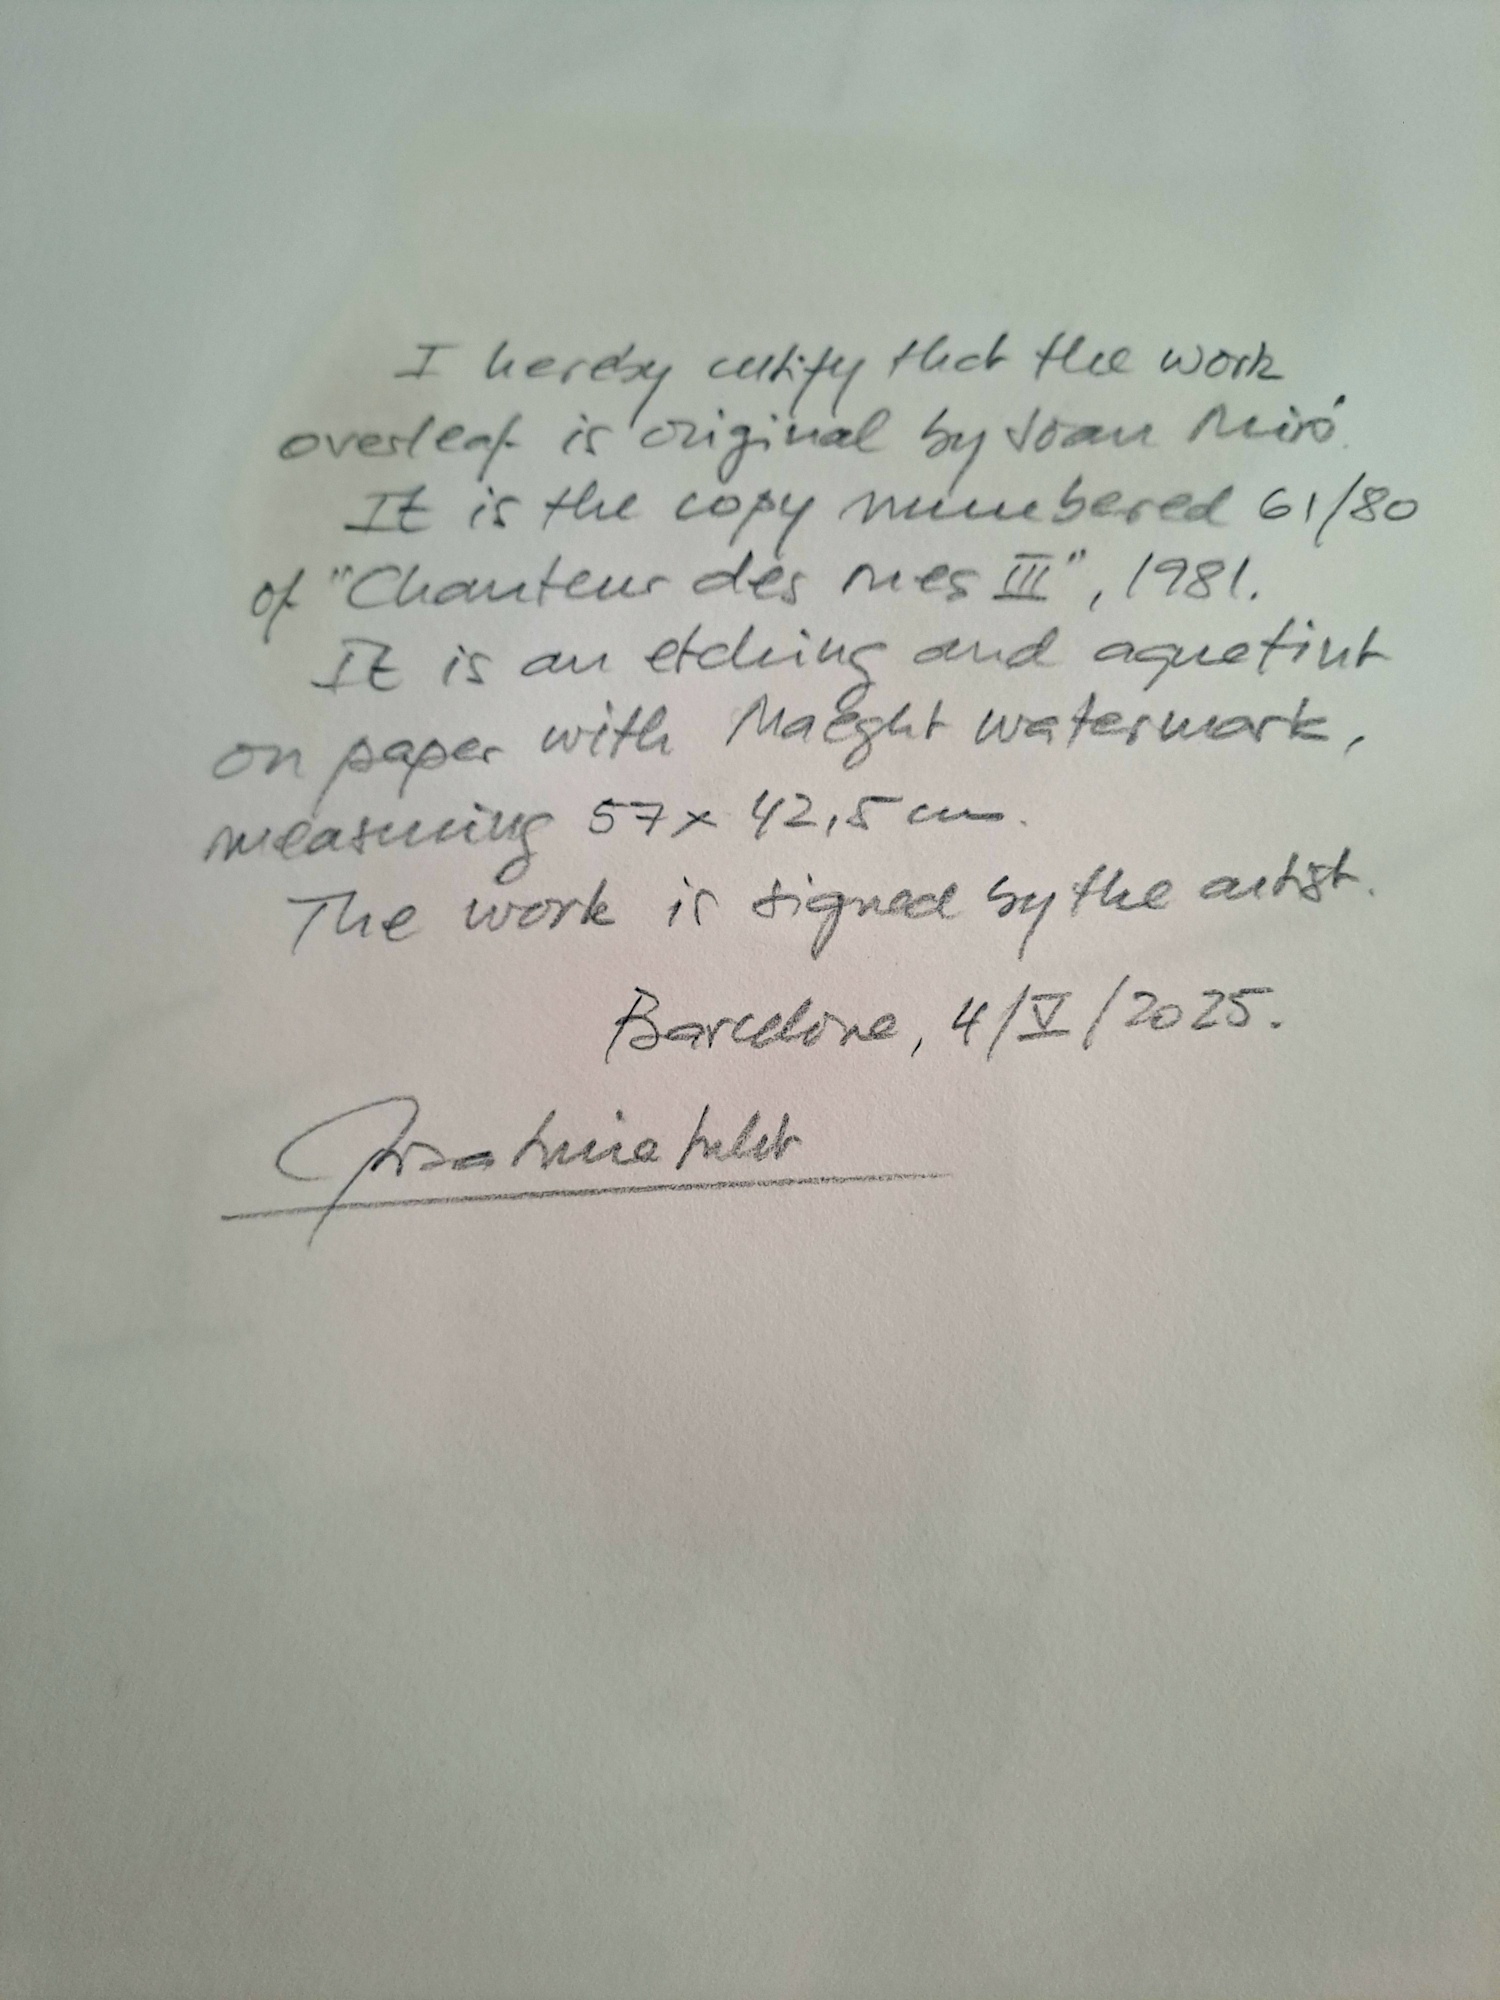 I hereby certify that the work
overleaf is original by Joan Miró.
It is the copy numbered 61/80
of "Chanteur des rues III", 1981.
It is an etching and aquatint
on paper with Maeght watermark,
measuring 57 x 42,5 cm.
The work is signed by the artist.
Barcelona, 4/V/2025.